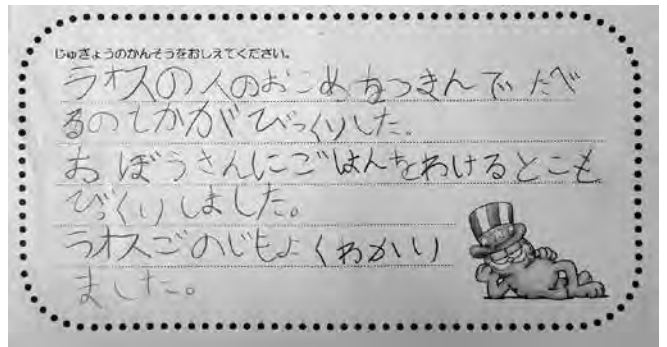 じゅぎょうのかんそうをおしえてください。
ラオスの人のおこめをつまんでたべ
るのしかがびっくりした。
おぼうさんにごはんをわけるとこも
びっくりしました。
ラオスごのじもよくわかり
ました。